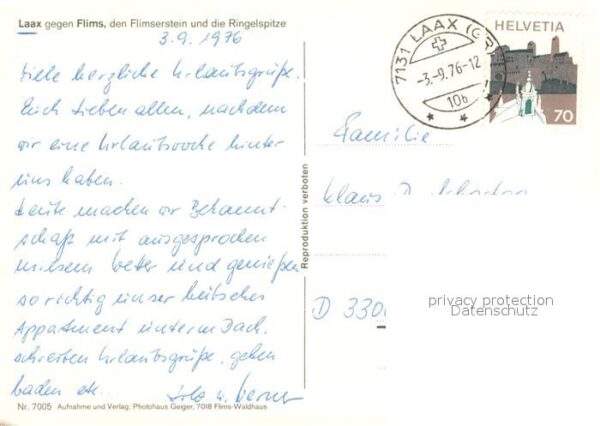 Laax gegen Flims, den Flimserstein und die Ringelspitze
3.9.1976
Viele herzliche Urlaubsgrüße.
Euch lieben allen, nachdem
wir eine Urlaubswoche hinter
uns haben.
Heute machen wir Bekannt-
schaft mit ausgesprochen
miesem Wetter und genießen
so richtig unser hübsches
Appartment unterm Dach.
schreiben Urlaubsgrüße, gehen
baden etc. u. Werner
Nr. 7005 Aufnahme und Verlag: Photohaus Geiger, 7018 Flims-Waldhaus
Reproduktion verboten
7131 LAAX (GR)
-3.-9.76-12
10b
HELVETIA
70
Familie
Klaus
D 330
privacy protection
Datenschutz